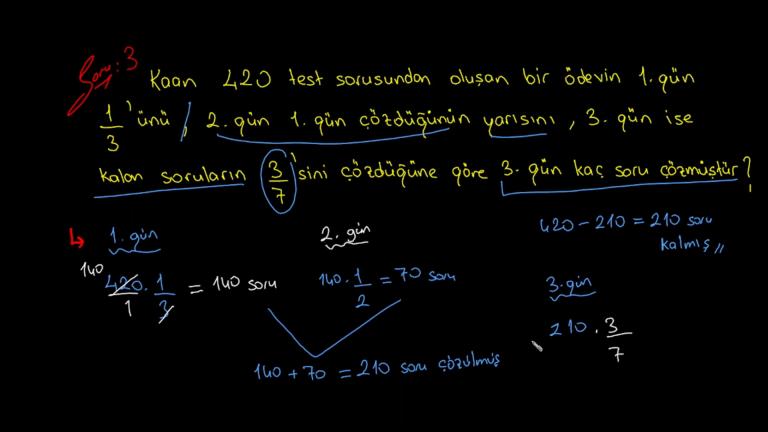 Soru: 3
Kaan 420 test sorusundan oluşan bir ödevin 1. gün
1/3 'ünü, 2. gün 1. gün çözdüğünün yarısını, 3. gün ise
kalan soruların 3/7 'sini çözdüğüne göre 3. gün kaç soru çözmüştür?
1. gün
140
420/1 . 1/3 = 140 soru
2. gün
140 . 1/2 = 70 soru
140 + 70 = 210 soru çözülmüş
420 - 210 = 210 soru
kalmış
3. gün
210 . 3/7